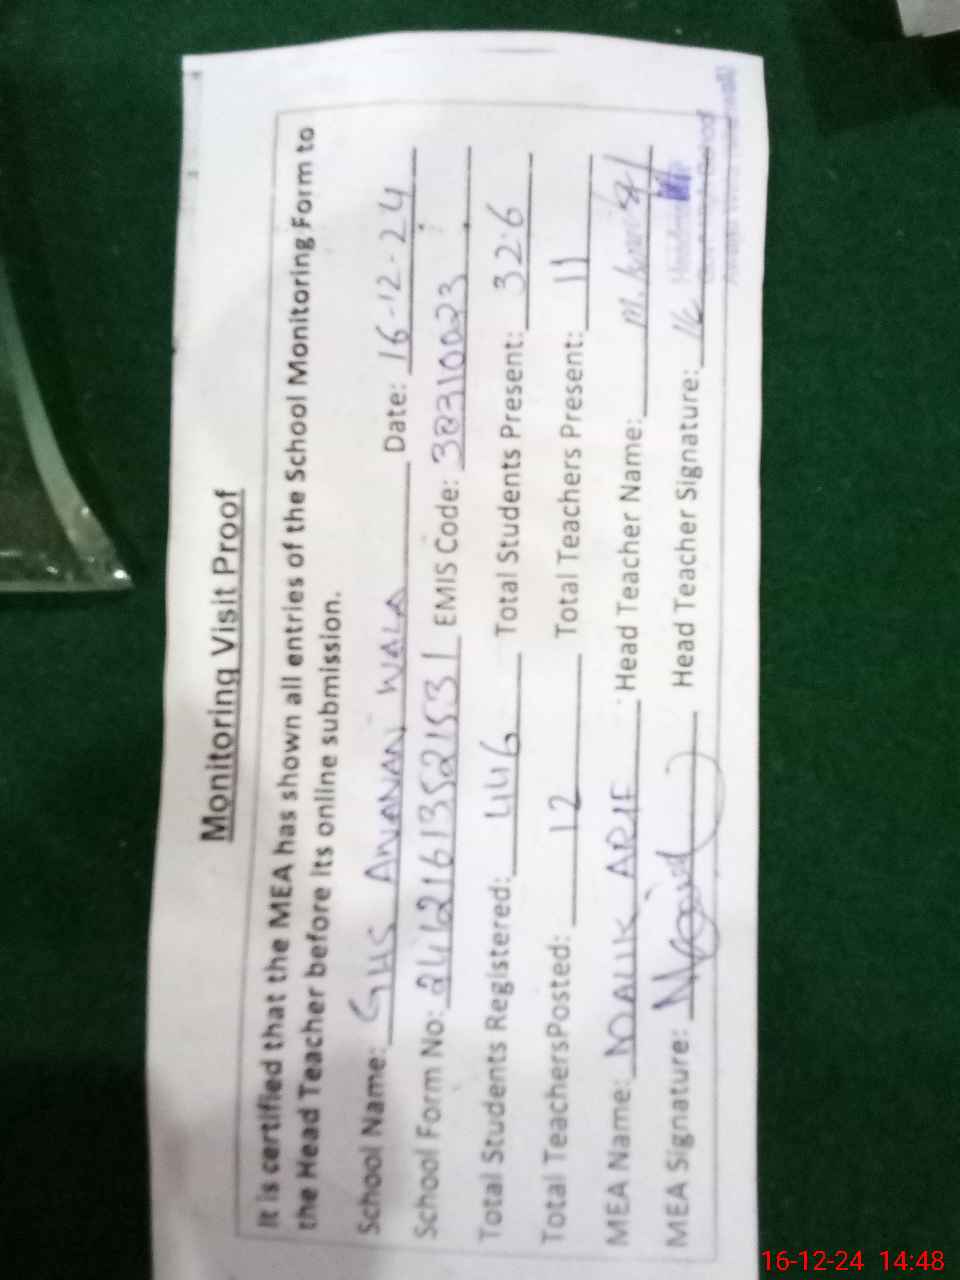 Monitoring Visit Proof
It is certified that the MEA has shown all entries of the School Monitoring Form to
the Head Teacher before its online submission.
School Name: GHS AWANAN WALA Date: 16-12-24
School Form No: EMIS Code: 38310023
Total Students Registered: 446 Total Students Present: 326
Total TeachersPosted: 12 Total Teachers Present: 11
MEA Name: MALIK ARIF Head Teacher Name:
MEA Signature: Head Teacher Signature:
16-12-24 14:48